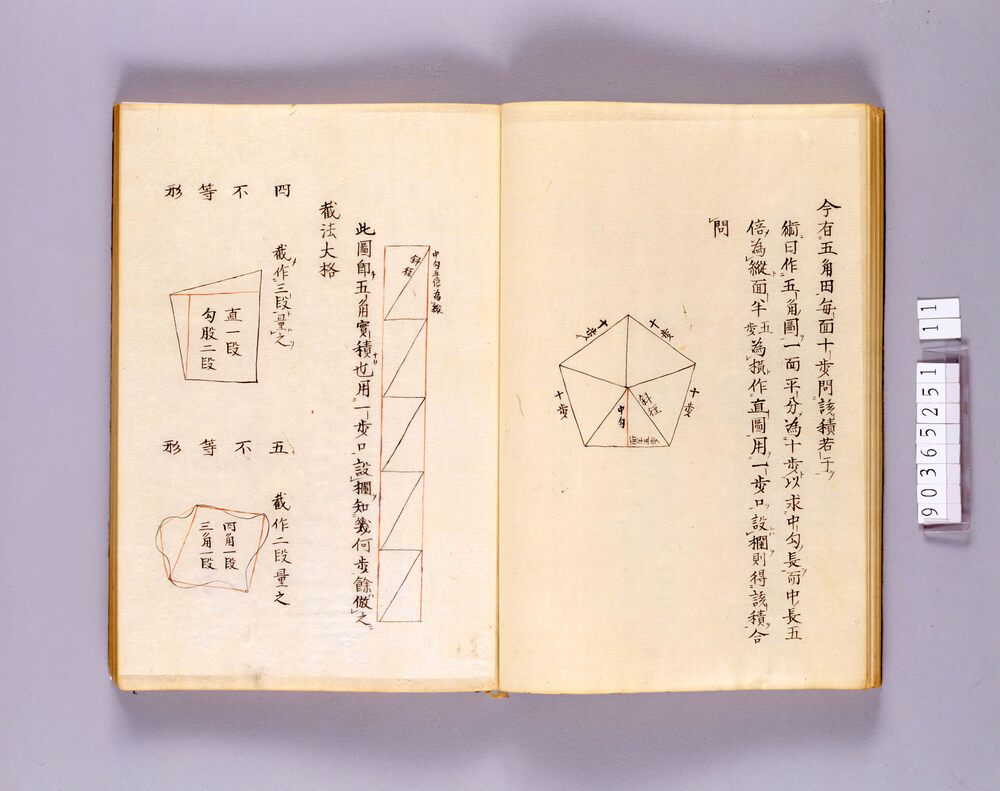 今有五角田毎面十歩問該積若干
術曰作五角圖一面平分為十歩以求中勾長而中長五
倍為縱面半五歩為横作直圖用一歩口設欄則得該積合
問
十歩
十歩
十歩
十歩
斜径
中勾
面半五歩
中勾五倍為縱
斜径
此圖即五角實積也用一歩口設欄知幾何歩餘倣之
截法大格
四不等形
截作三段量之
直一段
勾股二段
五不等形
截作二段量之
四角一段
三角一段
9036525111